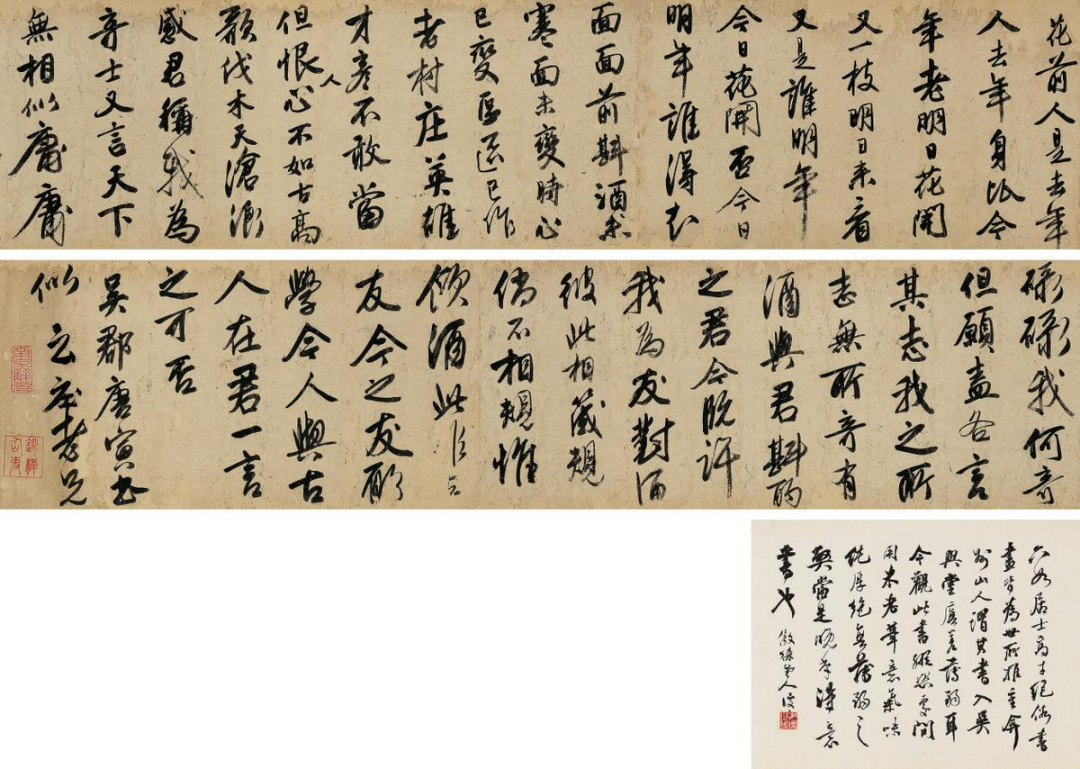 花前人是去年
人去年身比今
年老明日花開
又一枝明日來看
又是誰明年
今日花開否今日
明年誰得知
面面前斟酒未
寒面未變時心
已變區區已作
老村庄英雄
才彥不敢當
但恨人心不如古高
歌伐木天滄浪
感君稱我為
奇士又言天下
無相似庸庸
碌碌我何奇
但願盍各言
其志我之所
志無所奇有
酒與君斟酌
之君今既許
我為友對酒
彼此相箴規
倘不相規惟
酒此
友今之友願
學今人與古
人在君一言
之可否
吳郡唐寅書
似 老兄
六如居士高才絕俗書
畫皆為世所推重弇
州山人謂其書入吳
興堂廡差薄弱耳
今觀此書縱恣處間
用米老筆意氣味
純厚絕無薄弱之
當是晚年得意
書也